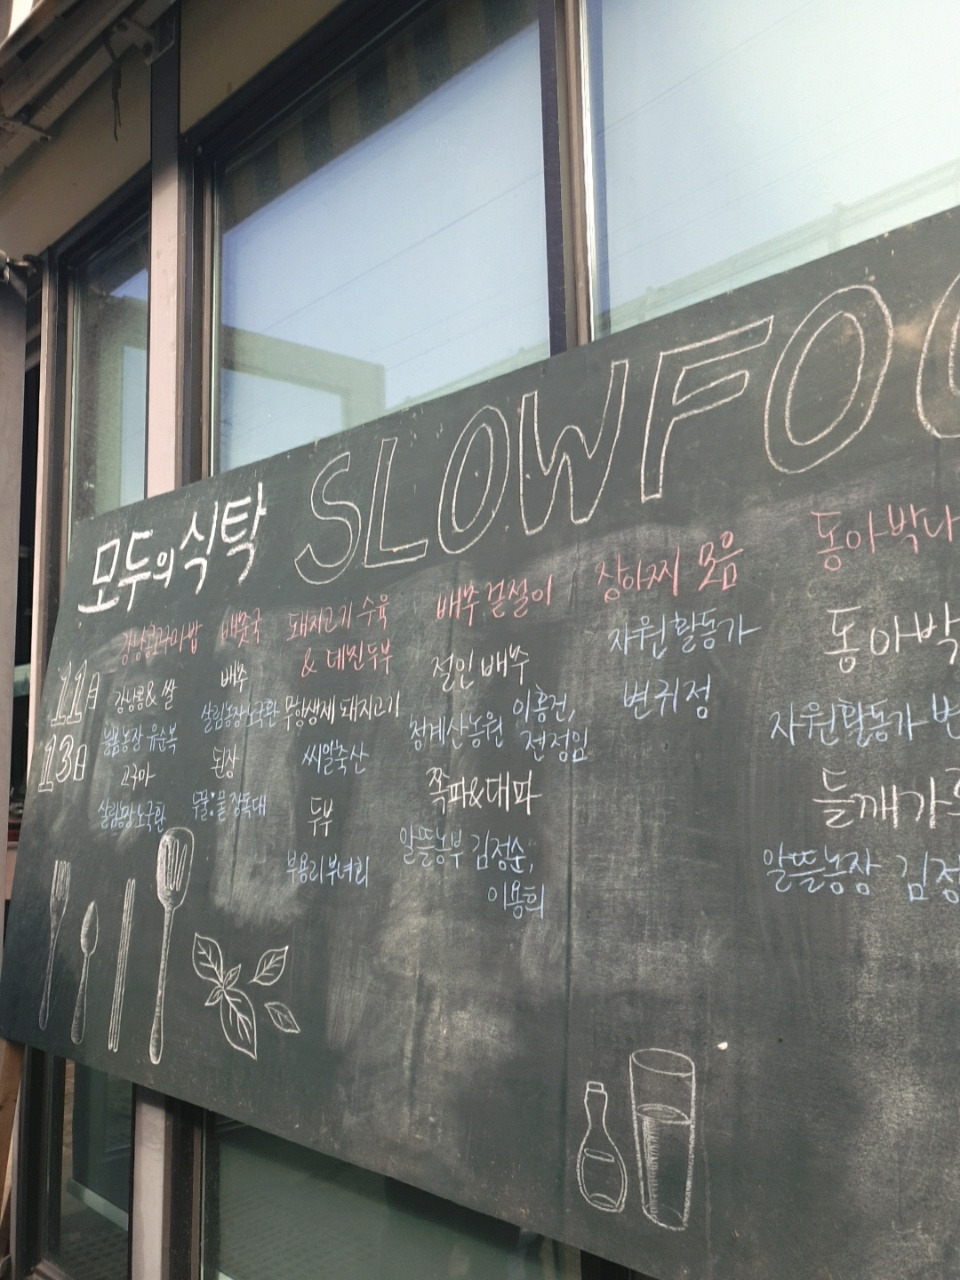 모두의 식탁 SLOWFOO
11월
13일
강낭콩고구마밥
강낭콩 & 쌀
봄봄농장 유순복
고구마
살림농장 노국환
배춧국
배추
살림농장 노국환
된장
무물:물 장독대
돼지고기 수육
& 데친두부
무항생제 돼지고기
씨알축산
두부
부용리부녀회
배추 겉절이
절인 배추
청계산농원 이홍건,
전정임
쪽파&대파
알뜰농부 김정순,
이용희
장아찌 모음
자원활동가
변귀정
동아박나
동아박
자원활동가 변
들깨가루
알뜰농장 김정